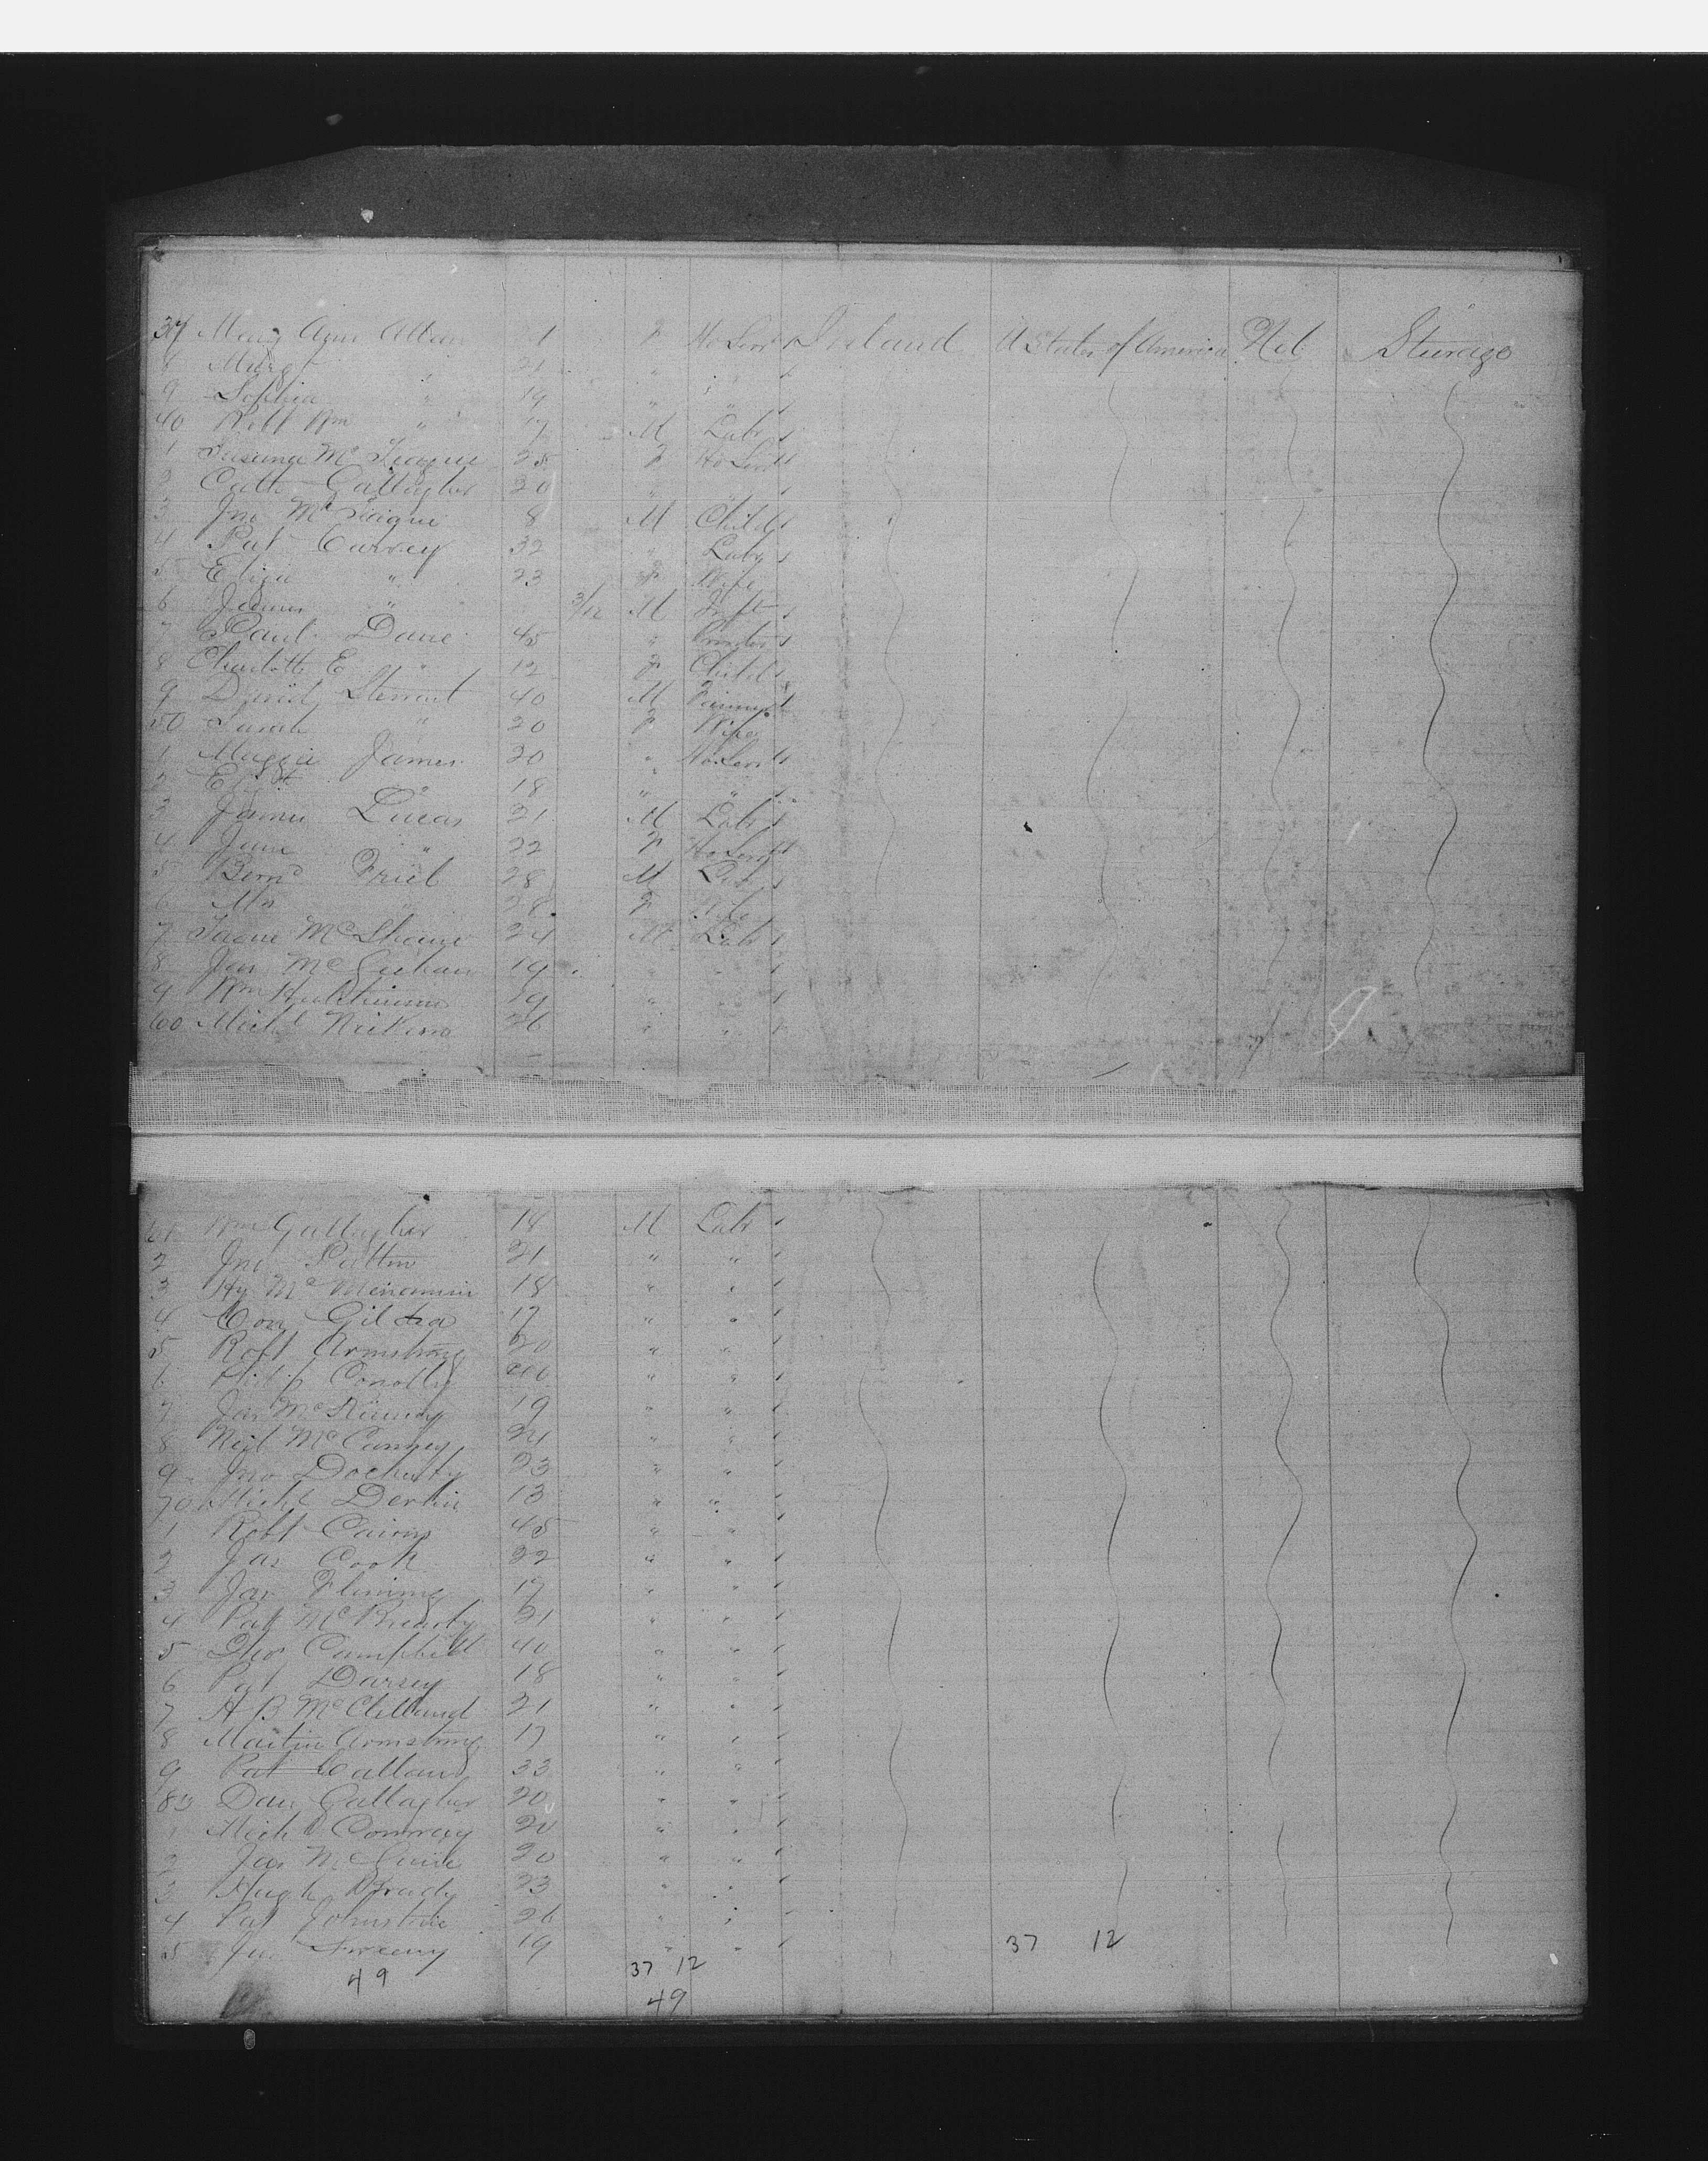 37 Mary Ann Allen F Ho Servt Ireland U States of America Nil Steerage
8 Margt " 21 " "
9 Sophia " 19 " "
40 Robt Wm " 17 M Labr
1 Susanna McTeague 25 F Ho Servt
2 Cath Gallagher 20 "
3 Jno McTeague 8 M Child
4 Pat Carrey 32 " Labr
5 Eliza " 23 F Wife
6 James " 3/12 M Inft
7 Paul Dane 45 "
8 Charlotte E " 12 F Child
9 David Stewart 40 M
50 Sarah " 20 F Wife
1 Maggie James 20 " Ho Servt
2 Elizth " 18 " "
3 James Lucas 21 M Labr
4 Jane " 22 F Ho Servt
5 Bernd Friel 28 M Labr
6 Mrs " 28 F Wife
7 McShane 24 M Labr
8 Jas 19 " "
9 Wm Hutchinson 19 " "
60 Michl 26 " "
61 Wm Gallagher 18 M Labr
2 Jno Patton 21 " "
3 Hy McMenamin 18 " "
4 Con Gildea 17 " "
5 Robt Armstrong 20 " "
6 Philip Conolly " "
7 Jas 19 " "
8 Neil McCanney 21 " "
9 Jno Docherty 23 " "
70 Michl Devlin 13 " "
1 Robt Cairns 45 " "
2 Jas Cook 22 " "
3 Jas Fleming 17 " "
4 Pat McBrearty 21 " "
5 Thos Campbell 40 " "
6 Pat Darsey 18 " "
7 A B McClelland 21 " "
8 Martin Armstrong 17 " "
9 Pat 33 " "
80 Dan Gallagher 20 " "
1 Michl Conway 20 " "
2 Jas McGuire 20 " "
3 Hugh Brady 23 " "
4 Pat Johnstone 26 " "
5 Jno Sweeny 19 " " 37 12
49 37 12
49